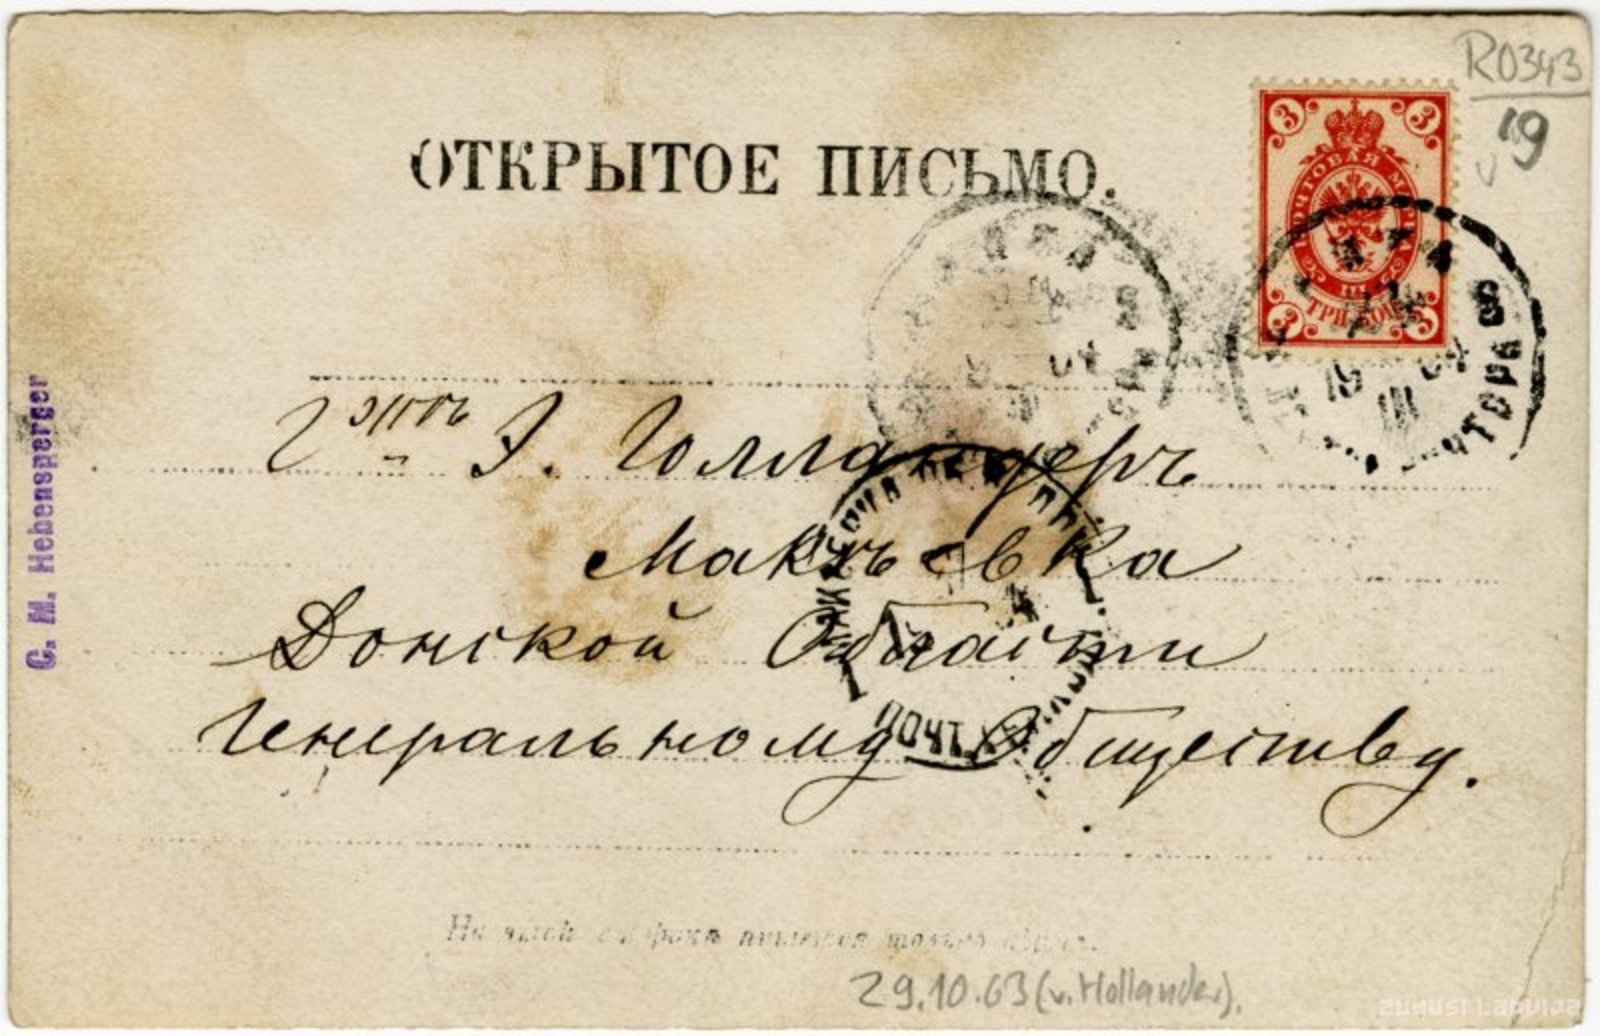 R0343
19
ОТКРЫТОЕ ПИСЬМО.
3 3
ПОЧТОВАЯ МАРКА
ТРИ КОП.
3 3
15 III 04
КОНТОРА
C. M. Hebensperger
Э. Голландеръ
Макѣевка
Донской Области
Генеральному Обществу.
ПОЧТ.
На этой сторонѣ пишется только адресъ.
29.10.63 (v. Hollander).
ZUDUSI LATVIJA